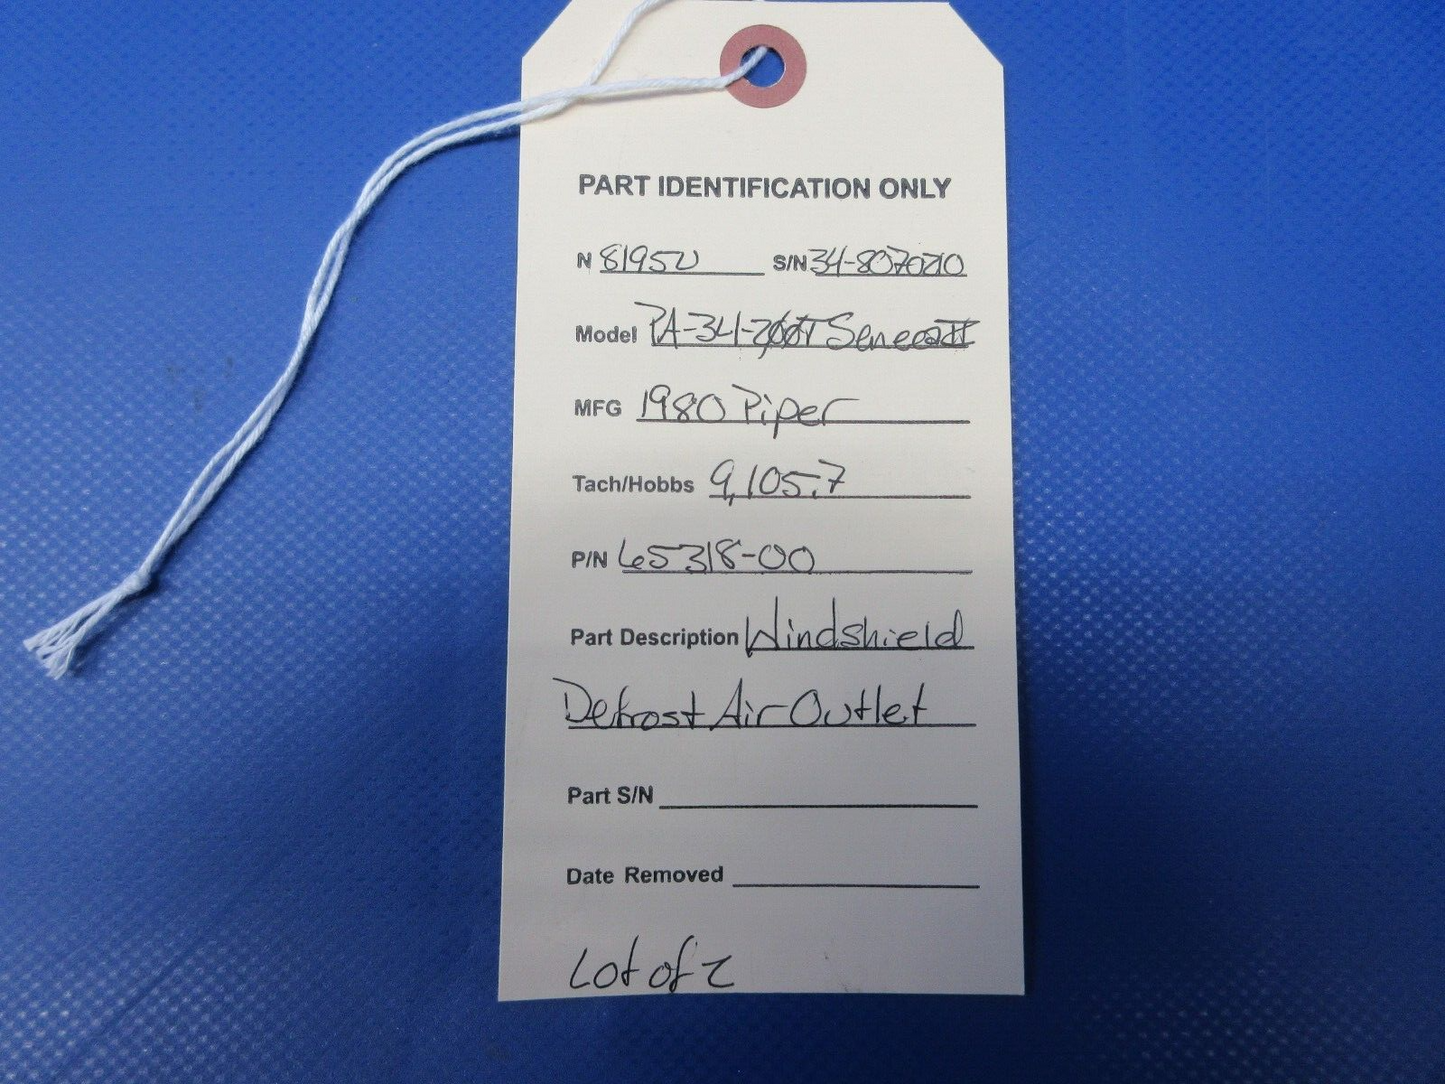 PART IDENTIFICATION ONLY
N 8195U S/N 34-8070210
Model PA-34-200T Seneca II
MFG 1980 Piper
Tach/Hobbs 9,105.7
P/N 65318-00
Part Description Windshield
Defrost Air Outlet
Part S/N
Date Removed
Lot of 2